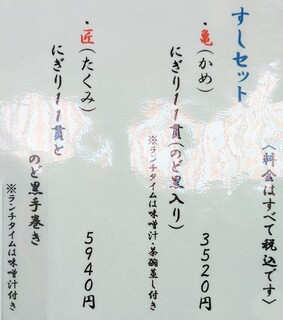 すしセット
(料金はすべて税込です)
・亀(かめ)
にぎり11貫(のど黒入り)
3520円
※ランチタイムは味噌汁・茶碗蒸し付き
・匠(たくみ)
にぎり11貫と
のど黒手巻き
5940円
※ランチタイムは味噌汁付き